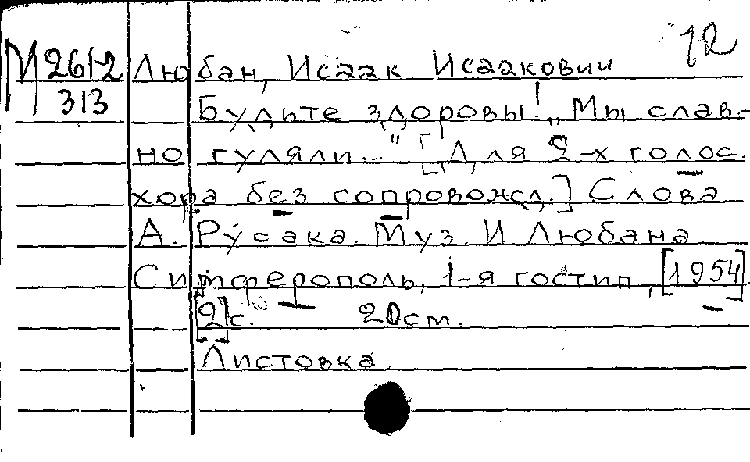 12
М 261-2 Любан, Исаак Исаакович
313 Будьте здоровы! „Мы слав-
но гуляли..." [Для 2-х голос.
хора без сопровожд.] Слова
А. Русака. Муз. И Любана
Симферополь, 1-я гостип, [1954]
[2]с. 20см.
Листовка.